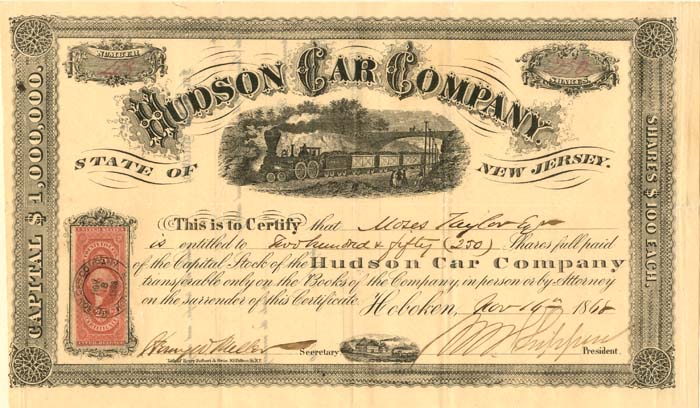 NUMBER
SHARES
HUDSON CAR COMPANY.
STATE OF NEW JERSEY.
CAPITAL $1,000,000.
SHARES $100 EACH.
This is to Certify that Moses Taylor Esq
is entitled to Two hundred & fifty (250) Shares full paid
of the Capital Stock of the Hudson Car Company
transferable only on the Books of the Company, in person or by Attorney
on the surrender of this Certificate. Hoboken, Nov 16th 1868
Secretary
President.